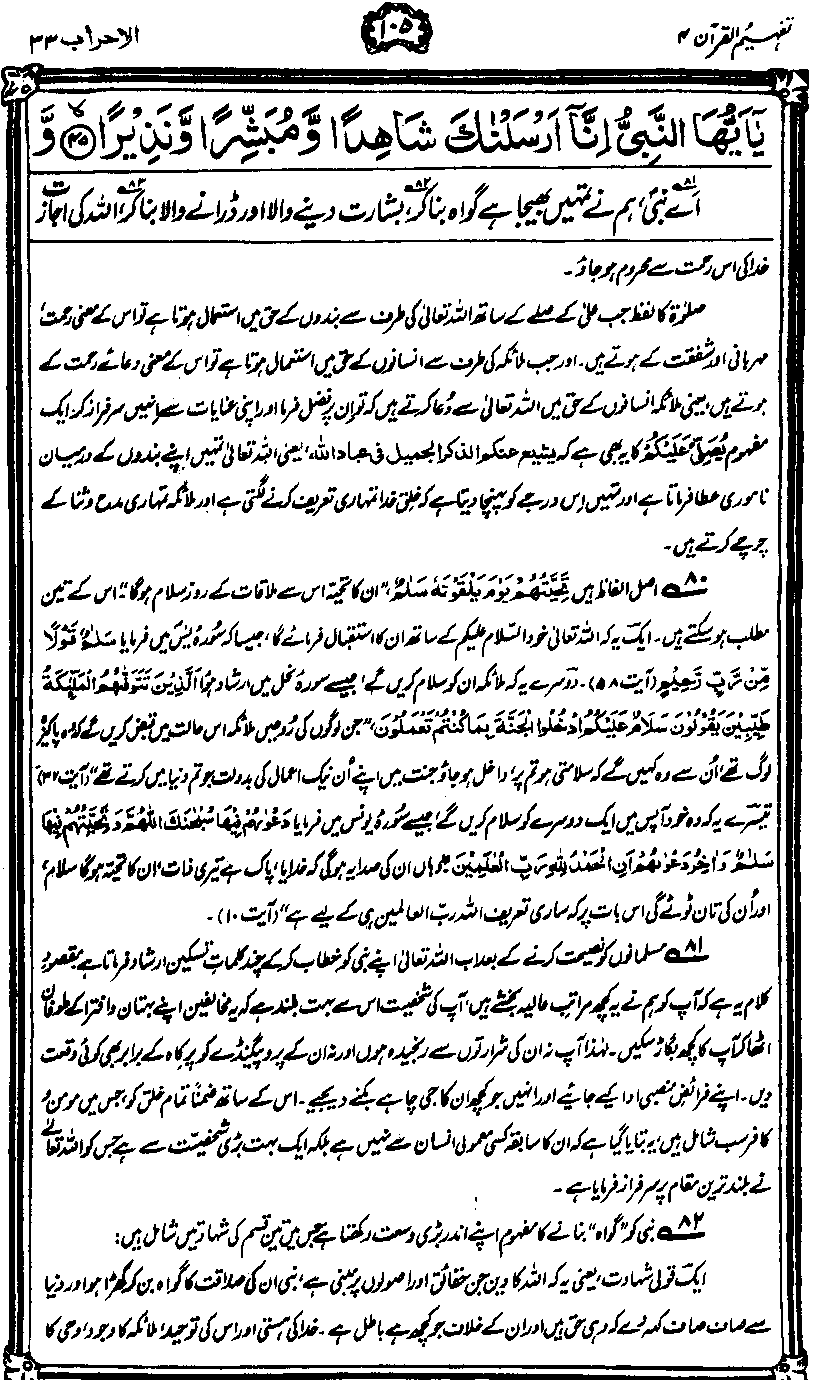 تفہیم القرآن ۴
۱۰۵
الاحزاب ۳۳
يٰۤاَيُّهَا النَّبِيُّ اِنَّاۤ اَرْسَلْنٰكَ شَاهِدًا وَّمُبَشِّرًا وَّنَذِيْرًا ﴿۴۵﴾ وَّ
اے نبیؐ،۸۱ ہم نے تمہیں بھیجا ہے گواہ بنا کر،۸۲ بشارت دینے والا اور ڈرانے والا بنا کر،۸۳ اللہ کی اجازت
خدا کی اس رحمت سے محروم ہو جاؤ۔
صلوٰۃ کا لفظ جب علیٰ کے صلے کے ساتھ اللہ تعالیٰ کی طرف سے بندوں کے حق میں استعمال ہوتا ہے تو اس کے معنی رحمت،
مہربانی اور شفقت کے ہوتے ہیں۔ اور جب ملائکہ کی طرف سے انسانوں کے حق میں استعمال ہوتا ہے تو اس کے معنی دعائے رحمت کے
ہوتے ہیں، یعنی ملائکہ انسانوں کے حق میں اللہ تعالیٰ سے دُعا کرتے ہیں کہ تو ان پر فضل فرما اور اپنی عنایات سے انہیں سرفراز کر۔ ایک
مفہوم يُصَلِّيْ عَلَيْكُمْ کا یہ بھی ہے کہ یشیع عنکم الذکر الجمیل فی عباد اللہ، یعنی اللہ تعالیٰ تمہیں اپنے بندوں کے درمیان
ناموری عطا فرماتا ہے اور تمہیں اس درجے کو پہنچا دیتا ہے کہ خلقِ خدا تمہاری تعریف کرنے لگتی ہے اور ملائکہ تمہاری مدح و ثنا کے
چرچے کرتے ہیں۔
۸۰ اصل الفاظ ہیں تَحِيَّتُهُمْ يَوْمَ يَلْقَوْنَهٗ سَلٰمٌ، "ان کا تحیّہ اس سے ملاقات کے روز سلام ہوگا"۔ اس کے تین
مطلب ہو سکتے ہیں۔ ایک یہ کہ اللہ تعالیٰ خود السّلام علیکم کے ساتھ ان کا استقبال فرمائے گا، جیسا کہ سُورۂ یٰسٓ میں فرمایا سَلٰمٌ قَوْلًا
مِّنْ رَّبٍّ رَّحِيْمٍ (آیت ۵۸)۔ دوسرے یہ کہ ملائکہ ان کو سلام کریں گے، جیسے سورۂ نحل میں ارشاد ہوا اَلَّذِيْنَ تَتَوَفّٰهُمُ الْمَلٰٓئِكَةُ
طَيِّبِيْنَ يَقُوْلُوْنَ سَلَامٌ عَلَيْكُمُ ادْخُلُوا الْجَنَّةَ بِمَا كُنْتُمْ تَعْمَلُوْنَ، "جن لوگوں کی رُوحیں ملائکہ اس حالت میں قبض کریں گے کہ وہ پاکیزہ
لوگ تھے، اُن سے وہ کہیں گے کہ سلامتی ہو تم پر، داخل ہو جاؤ جنت میں اپنے اُن نیک اعمال کی بدولت جو تم دنیا میں کرتے تھے" (آیت ۳۲)
تیسرے یہ کہ وہ خود آپس میں ایک دوسرے کو سلام کریں گے، جیسے سُورۂ یونس میں فرمایا دَعْوٰىهُمْ فِيْهَا سُبْحٰنَكَ اللّٰهُمَّ وَتَحِيَّتُهُمْ فِيْهَا
سَلٰمٌ وَاٰخِرُ دَعْوٰىهُمْ اَنِ الْحَمْدُ لِلّٰهِ رَبِّ الْعٰلَمِيْنَ "وہاں ان کی صدا یہ ہوگی کہ خدایا، پاک ہے تیری ذات، ان کا تحیّہ ہوگا سلام،
اور اُن کی تان ٹوٹے گی اس بات پر کہ ساری تعریف اللہ ربّ العالمین ہی کے لیے ہے" (آیت ۱۰)۔
۸۱ مسلمانوں کو نصیحت کرنے کے بعد اب اللہ تعالیٰ اپنے نبی کو خطاب کر کے چند کلماتِ تسکین ارشاد فرماتا ہے۔ مقصودِ
کلام یہ ہے کہ آپ کو ہم نے یہ کچھ مراتبِ عالیہ بخشے ہیں، آپ کی شخصیت اس سے بہت بلند ہے کہ یہ مخالفین اپنے بہتان و افترا کے طوفان
اٹھا کر آپ کا کچھ بگاڑ سکیں۔ لہٰذا آپ نہ ان کی شرارتوں سے رنجیدہ ہوں اور نہ ان کے پروپیگنڈے کو پرِ کاہ کے برابر بھی کوئی وقعت
دیں۔ اپنے فرائضِ منصبی ادا کیے جائیے اور انہیں جو کچھ ان کا جی چاہے بکنے دیجیے۔ اس کے ساتھ ضمناً تمام خلق کو، جس میں مومن و
کافر سب شامل ہیں، یہ بتایا گیا ہے کہ ان کا سابقہ کسی معمولی انسان سے نہیں ہے بلکہ ایک بہت بڑی شخصیّت سے ہے جس کو اللہ تعالےٰ
نے بلند ترین مقام پر سرفراز فرمایا ہے۔
۸۲ نبی کو "گواہ" بنانے کا مفہوم اپنے اندر بڑی وسعت رکھتا ہے جس میں تین قسم کی شہادتیں شامل ہیں:
ایک قولی شہادت، یعنی یہ کہ اللہ کا دین جن حقائق اور اصولوں پر مبنی ہے، نبی ان کی صداقت کا گواہ بن کر کھڑا ہو اور دنیا
سے صاف صاف کہہ دے کہ وہی حق ہیں اور ان کے خلاف جو کچھ ہے باطل ہے۔ خدا کی ہستی اور اس کی توحید، ملائکہ کا وجود، وحی کا